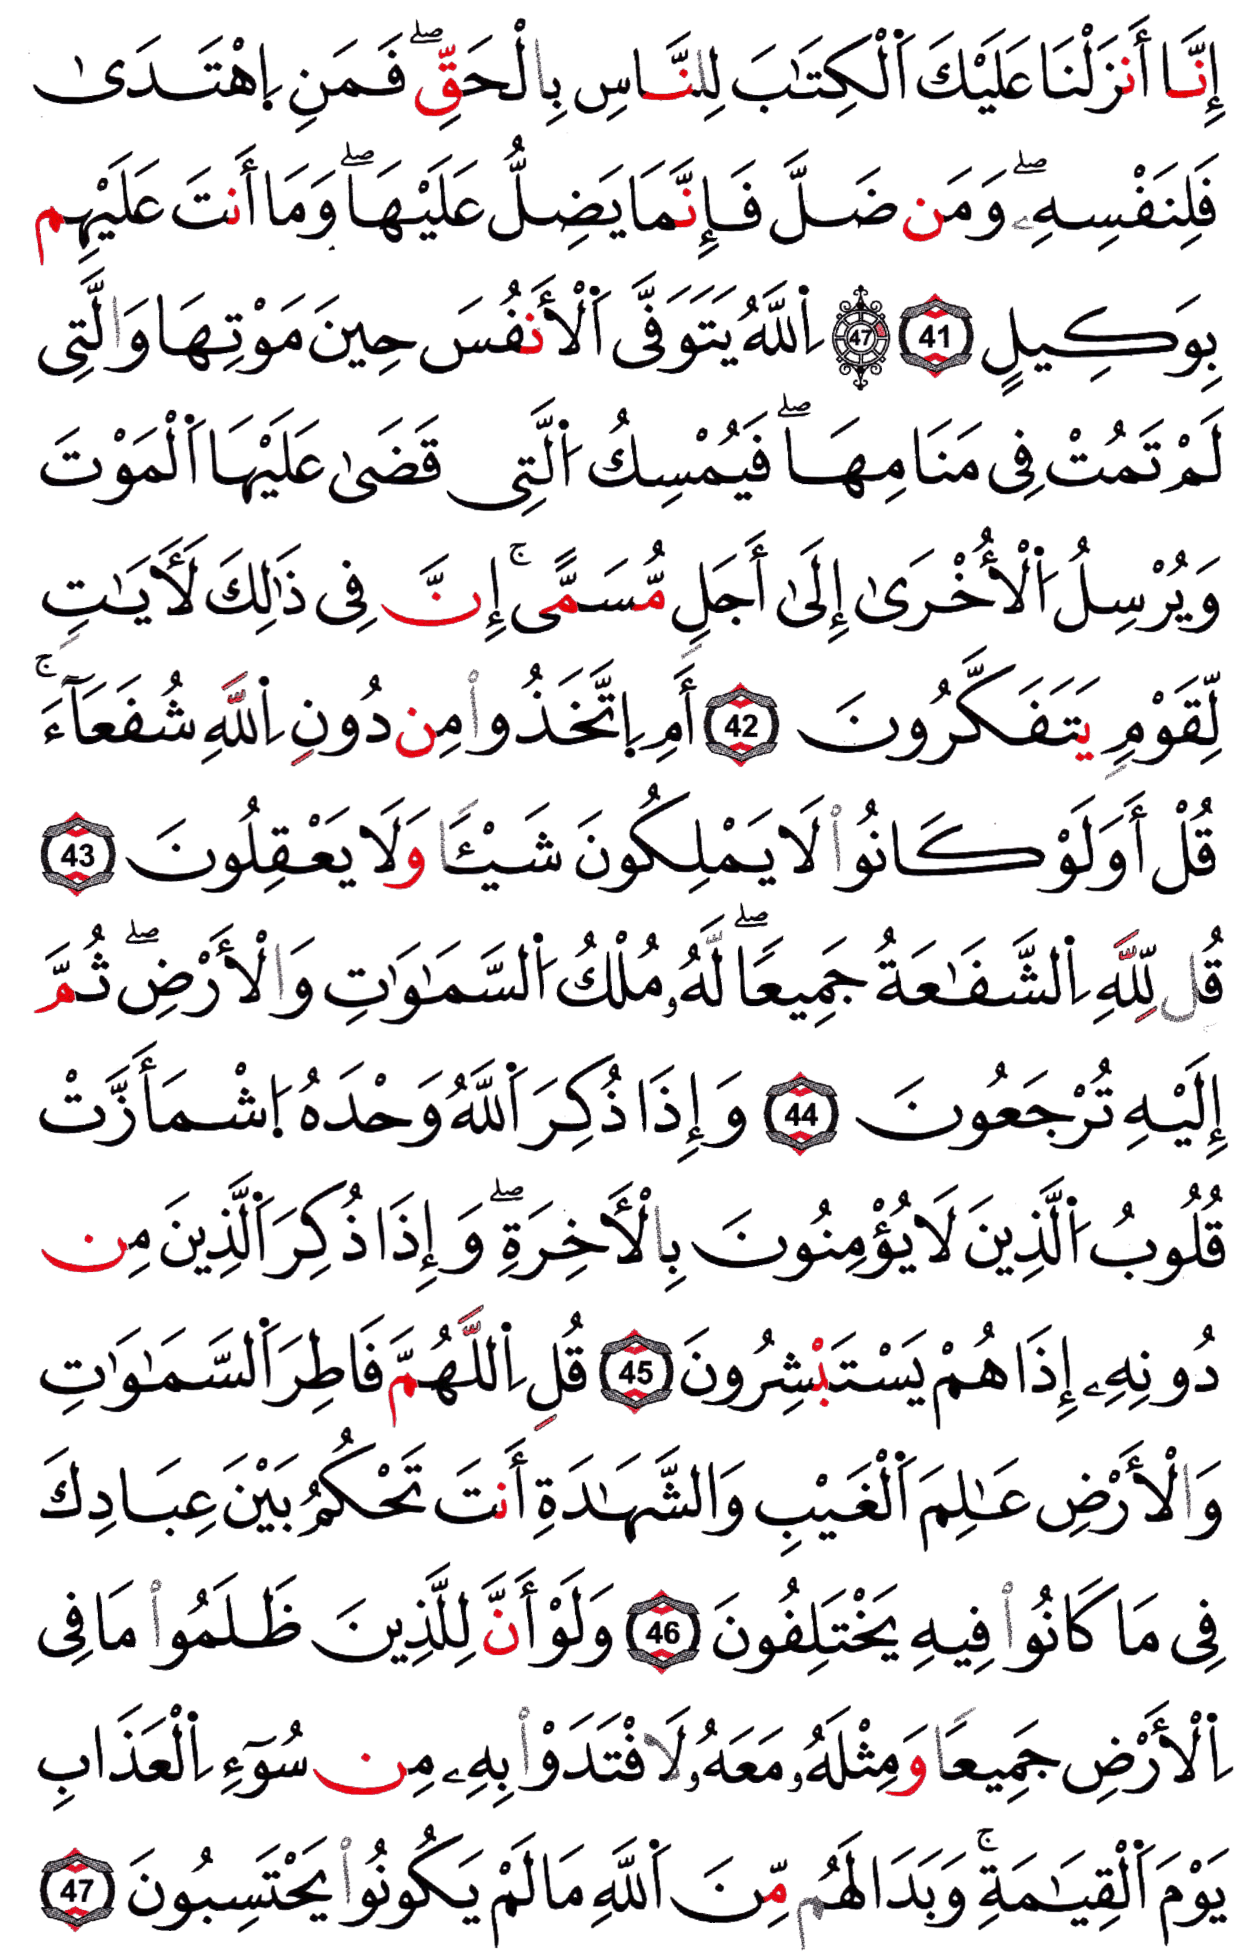 إِنَّا أَنزَلْنَا عَلَيْكَ اَ۬لْكِتَٰبَ لِلنَّاسِ بِالْحَقِّۖ فَمَنِ اِ۪هْتَدَىٰ
فَلِنَفْسِهِۦۖ وَمَن ضَلَّ فَإِنَّمَا يَضِلُّ عَلَيْهَاۖ وَمَا أَنتَ عَلَيْهِم
بِوَكِيلٍ 41 47 اِ۬للَّهُ يَتَوَفَّى اَ۬لْأَنفُسَ حِينَ مَوْتِهَا وَالَّتِى
لَمْ تَمُتْ فِى مَنَامِهَاۖ فَيُمْسِكُ اُ۬لَّتِى قَضَىٰ عَلَيْهَا اَ۬لْمَوْتَ
وَيُرْسِلُ اُ۬لْأُخْرَىٰ إِلَىٰ أَجَلٍ مُّسَمًّىۚ إِنَّ فِى ذَٰلِكَ لَأَيَٰتٍ
لِّقَوْمٍ يَتَفَكَّرُونَ 42 أَمِ اِ۪تَّخَذُوا۟ مِن دُونِ اِ۬للَّهِ شُفَعَآءَۚ
قُلْ أَوَلَوْ كَانُوا۟ لَا يَمْلِكُونَ شَيْـًٔا وَلَا يَعْقِلُونَ 43
قُل لِّلَّهِ اِ۬لشَّفَٰعَةُ جَمِيعًاۖ لَّهُۥ مُلْكُ اُ۬لسَّمَٰوَٰتِ وَالْأَرْضِۖ ثُمَّ
إِلَيْهِ تُرْجَعُونَ 44 وَإِذَا ذُكِرَ اَ۬للَّهُ وَحْدَهُ اُ۪شْمَأَزَّتْ
قُلُوبُ اُ۬لَّذِينَ لَا يُؤْمِنُونَ بِالْأَخِرَةِۖ وَإِذَا ذُكِرَ اَ۬لَّذِينَ مِن
دُونِهِۦ إِذَا هُمْ يَسْتَبْشِرُونَ 45 قُلِ اِ۬للَّهُمَّ فَاطِرَ اَ۬لسَّمَٰوَٰتِ
وَالْأَرْضِ عَٰلِمَ اَ۬لْغَيْبِ وَالشَّهَٰدَةِ أَنتَ تَحْكُمُ بَيْنَ عِبَادِكَ
فِى مَا كَانُوا۟ فِيهِ يَخْتَلِفُونَ 46 وَلَوْ أَنَّ لِلَّذِينَ ظَلَمُوا۟ مَا فِى
اِ۬لْأَرْضِ جَمِيعًا وَمِثْلَهُۥ مَعَهُۥ لَافْتَدَوْا۟ بِهِۦ مِن سُوٓءِ اِ۬لْعَذَابِ
يَوْمَ اَ۬لْقِيَٰمَةِۚ وَبَدَا لَهُم مِّنَ اَ۬للَّهِ مَا لَمْ يَكُونُوا۟ يَحْتَسِبُونَ 47